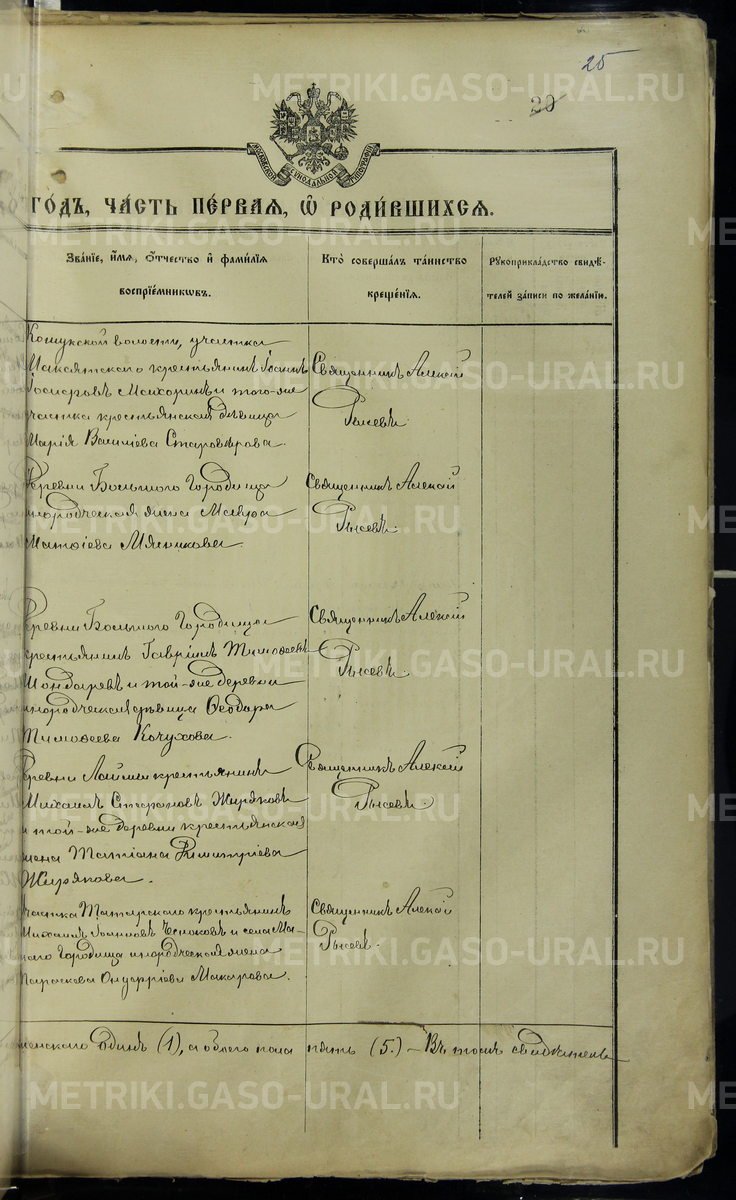 25
20
МОСКОВСКОЙ СѴНОДАЛЬНОЙ ТИПОГРАФІИ
ГО́ДЪ, ЧА́СТЬ ПЕ́РВАѦ, Ѡ҆ РОДИ́ВШИХСѦ.
Зва́ніе, и҆́мѧ, ѻ҆́тчество и҆ фами́лїѧ воспрїе́мникѡвъ.
Кто̀ соверша́лъ та́инство креще́нїѧ.
Рꙋкоприкла́дство свидѣ́телей за́писи по жела́нїю.
Кошукской волости, участка
крестьянинъ Іоаннъ
и того-же
участка крестьянская дѣвица
Марія Василіева Староверова.
Священникъ Алексій
Рысевъ.
Деревни Большого Городища
инородческая жена Мавра
Матѳіева Мясникова.
Священникъ Алексій
Рысевъ.
Деревни Большого Городища
крестьянинъ Гавріилъ Тимоѳеевъ
и той-же деревни
инородческая дѣвица Ѳеодора
Тимоѳеева Кочухова.
Священникъ Алексій
Рысевъ.
Деревни крестьянинъ
Михаилъ Стефановъ Жиряковъ
и той-же деревни крестьянская
жена Татіана Димитріева
Жирякова.
Священникъ Алексій
Рысевъ.
Участка Татарского крестьянинъ
Михаилъ Іоанновъ Чесноковъ и села Ма-
лого Городища инородческая жена
Параскева Онуфріева Макарова.
Священникъ Алексій
Рысевъ.
женского одинъ (1), а обоего пола пять (5.) – Въ томъ свидѣтель
METRIKI.GASO-URAL.RU